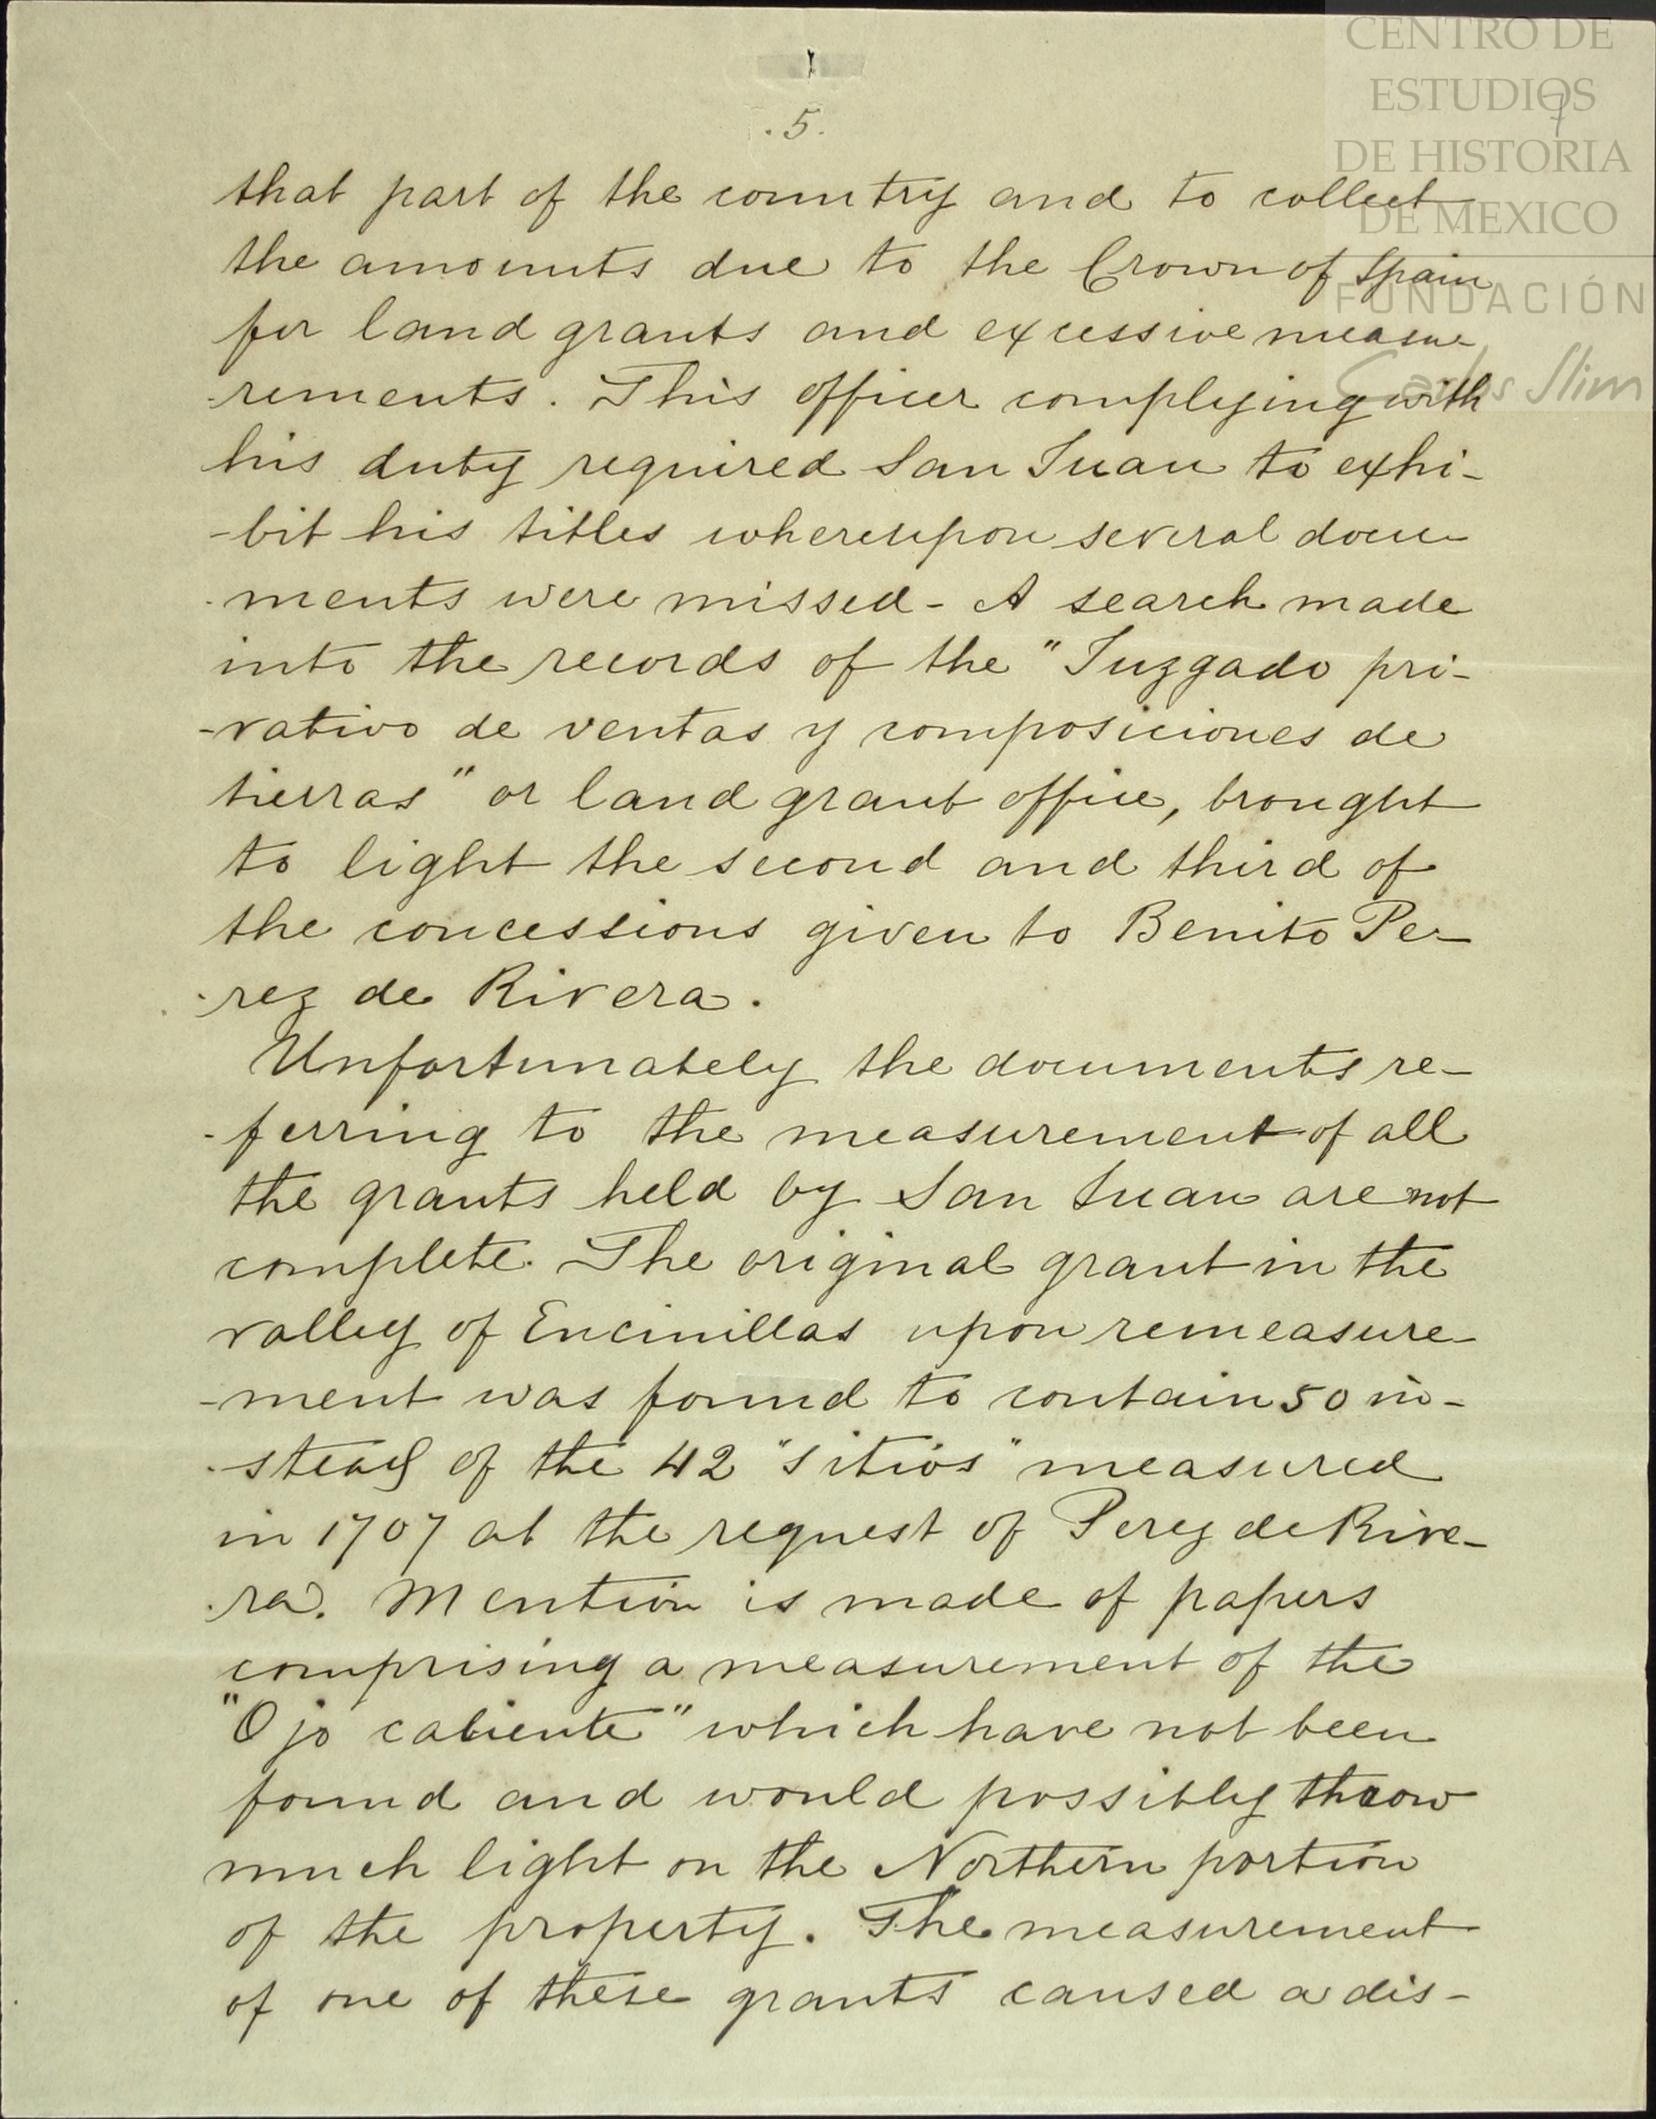 CENTRO DE
ESTUDIOS
DE HISTORIA
DE MEXICO
FUNDACIÓN
Carlos Slim
.5.
that part of the country and to collect
the amounts due to the Crown of Spain
for land grants and excessive measu-
-rements. This officer complying with
his duty required San Juan to exhi-
-bit his titles whereupon several docu-
-ments were missed - A search made
into the records of the "Juzgado pri-
-vativo de ventas y composiciones de
tierras" or land grant office, brought
to light the second and third of
the concessions given to Benito Pe-
-rez de Rivera.
Unfortunately the documents re-
-ferring to the measurement of all
the grants held by San Juan are not
complete. The original grant in the
valley of Encinillas upon remeasure-
-ment was found to contain 50 in-
-stead of the 42 "sitios" measured
in 1707 at the request of Perez de Rive-
-ra. Mention is made of papers
comprising a measurement of the
"Ojo caliente" which have not been
found and would possibly throw
much light on the Northern portion
of the property. The measurement
of one of these grants caused a dis-